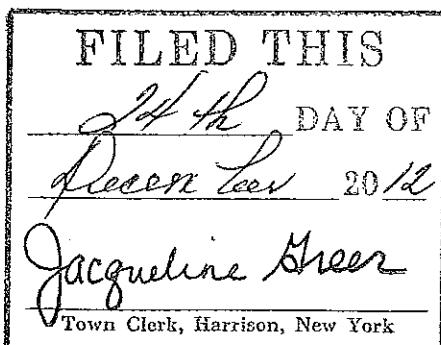 FILED THIS
24th DAY OF
December 2012
Jacqueline Greer
Town Clerk, Harrison, New York